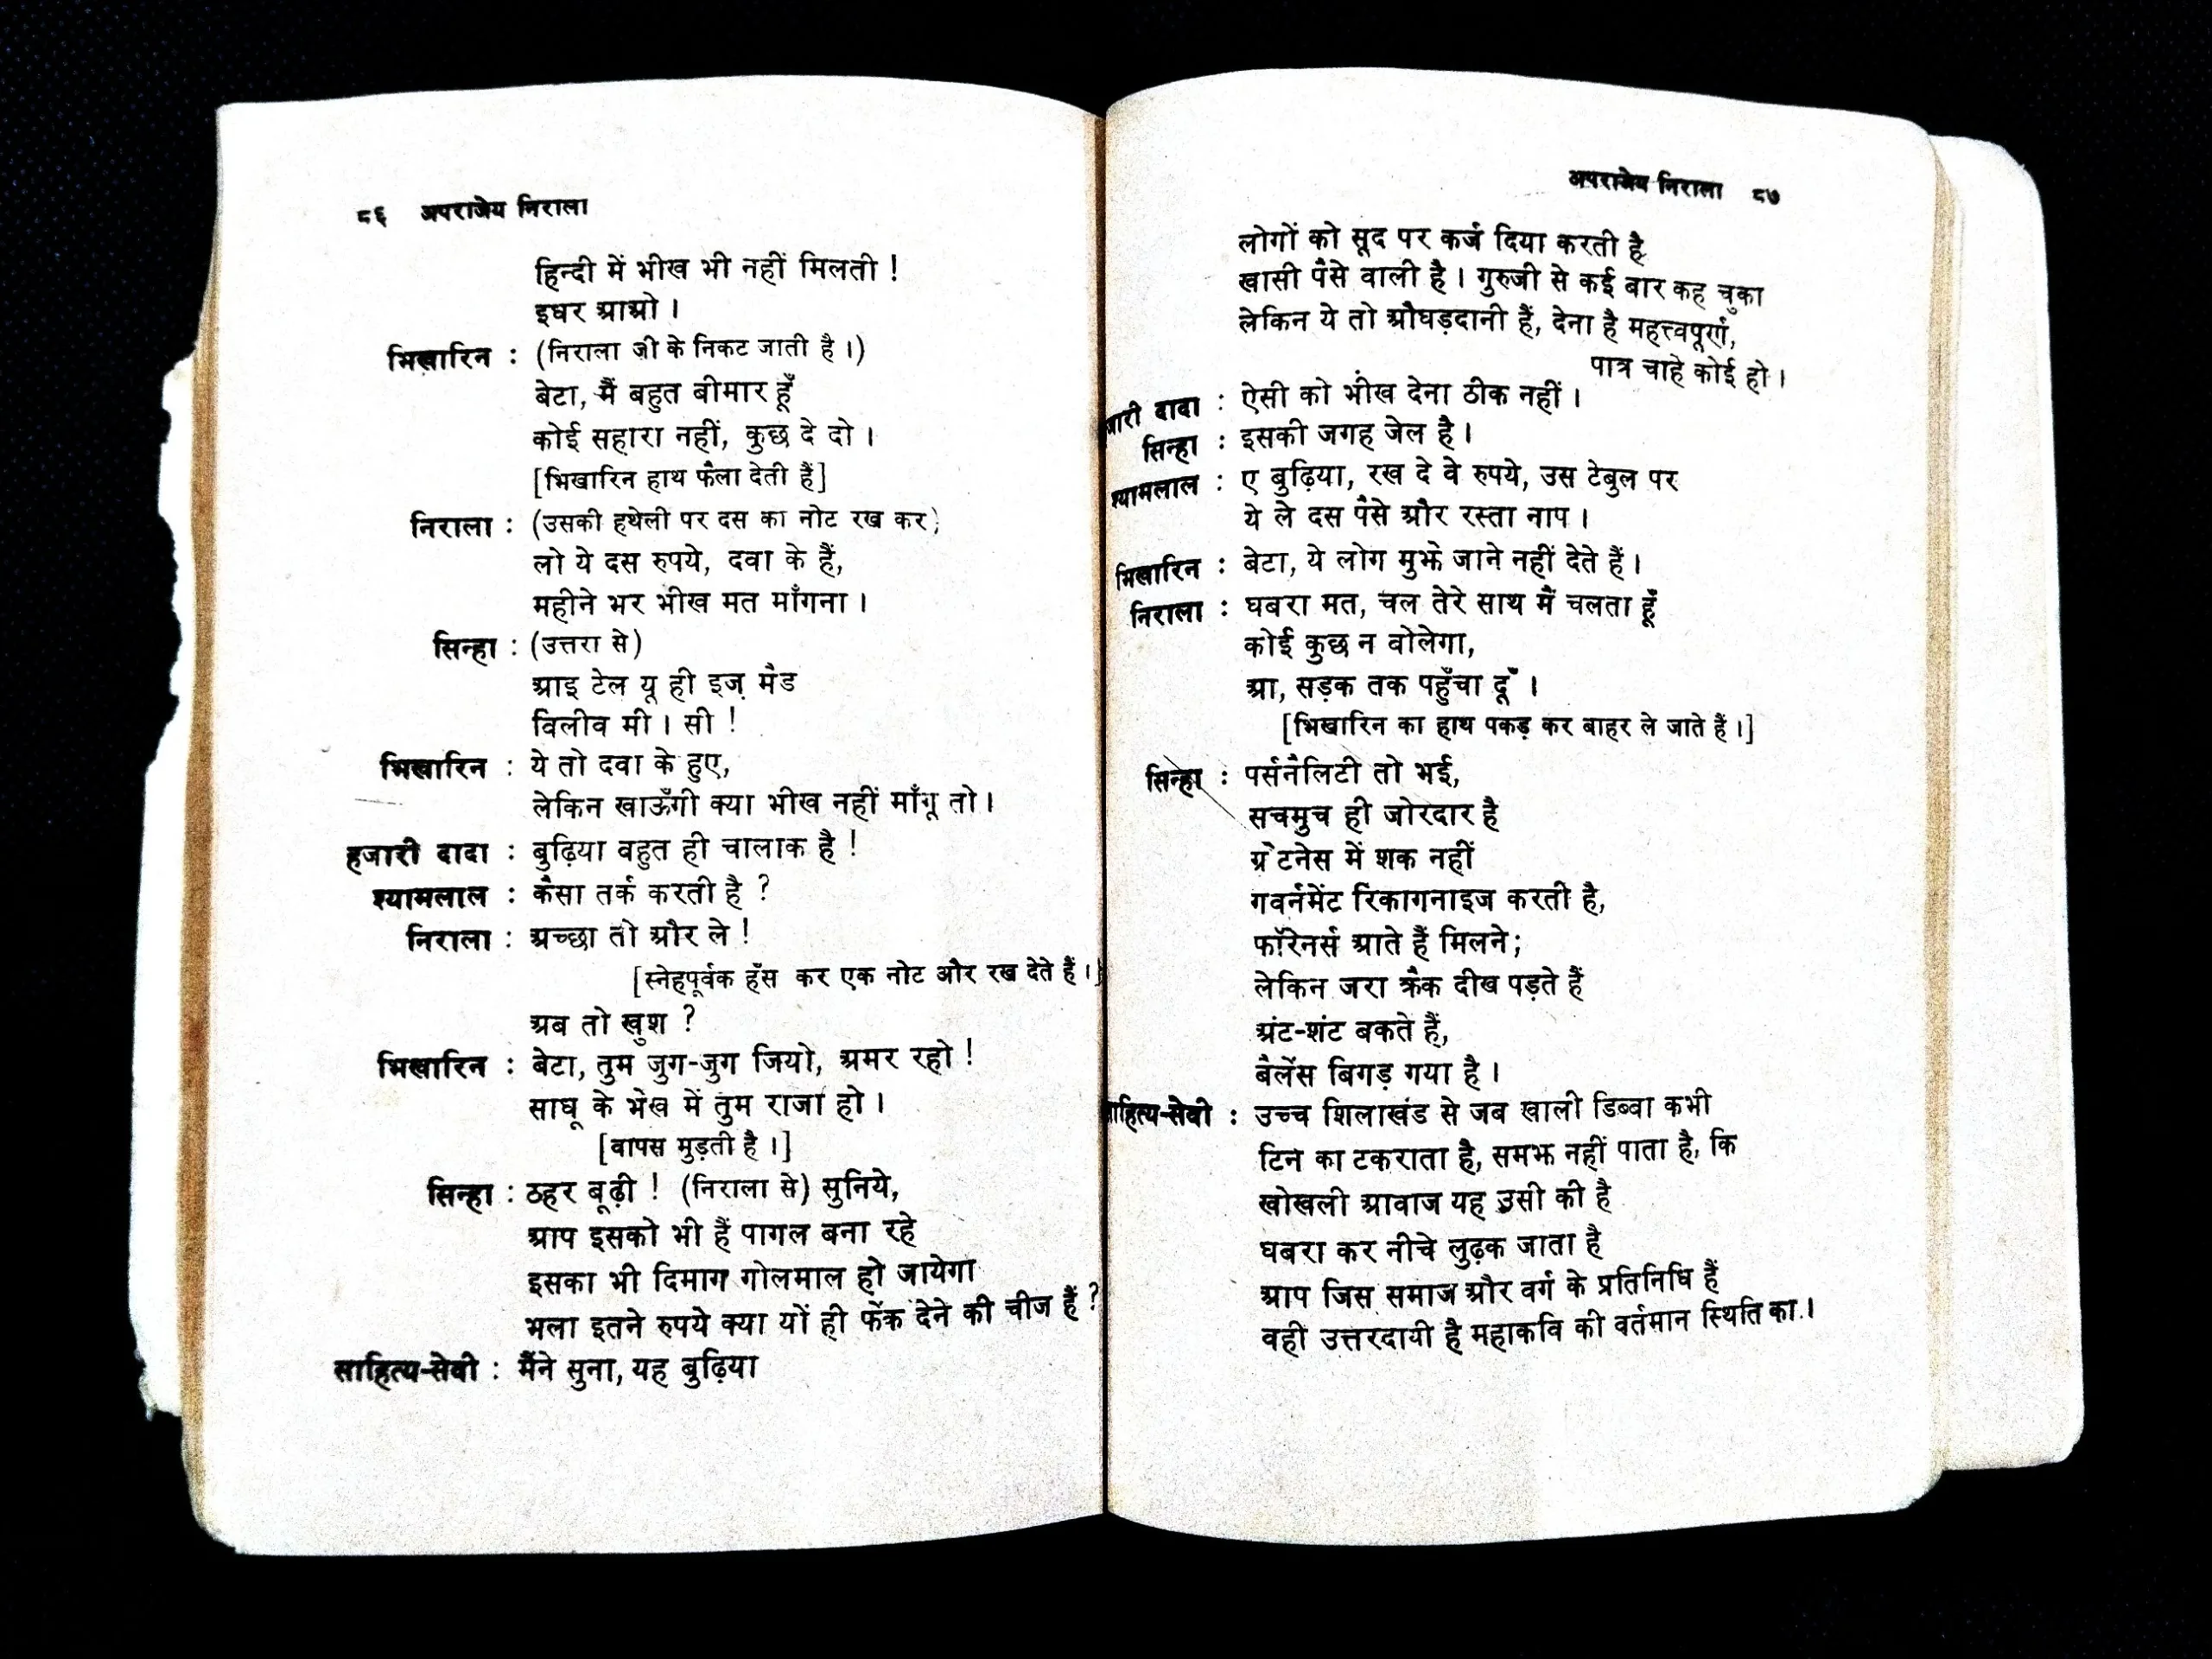 ८६ अपराजेय निराला
हिन्दी में भीख भी नहीं मिलती !
इधर आओ ।
भिखारिन : (निराला जी के निकट जाती है ।)
बेटा, मैं बहुत बीमार हूँ
कोई सहारा नहीं, कुछ दे दो ।
[भिखारिन हाथ फैला देती हैं]
निराला : (उसकी हथेली पर दस का नोट रख कर)
लो ये दस रुपये, दवा के हैं,
महीने भर भीख मत माँगना ।
सिन्हा : (उत्तरा से)
आइ टेल यू ही इज़ मैड
विलीव मी । सी !
भिखारिन : ये तो दवा के हुए,
लेकिन खाऊँगी क्या भीख नहीं माँगू तो ।
हजारी दादा : बुढ़िया वहुत ही चालाक है !
श्यामलाल : कैसा तर्क करती है ?
निराला : अच्छा तो और ले !
[स्नेहपूर्वक हँस कर एक नोट और रख देते हैं ।]
अब तो खुश ?
भिखारिन : बेटा, तुम जुग-जुग जियो, अमर रहो !
साधू के भेख में तुम राजा हो ।
[वापस मुड़ती है ।]
सिन्हा : ठहर बूढ़ी ! (निराला से) सुनिये,
आप इसको भी हैं पागल बना रहे
इसका भी दिमाग गोलमाल हो जायेगा
भला इतने रुपये क्या यों ही फेंक देने की चीज हैं ?
साहित्य-सेवी : मैंने सुना, यह बुढ़िया
अपराजेय निराला ८७
लोगों को सूद पर कर्ज दिया करती है
खासी पैसे वाली है । गुरुजी से कई बार कह चुका
लेकिन ये तो औघड़दानी हैं, देना है महत्त्वपूर्ण,
पात्र चाहे कोई हो ।
जारी दादा : ऐसी को भीख देना ठीक नहीं ।
सिन्हा : इसकी जगह जेल है ।
श्यामलाल : ए बुढ़िया, रख दे वे रुपये, उस टेबुल पर
ये ले दस पैसे और रस्ता नाप ।
भिखारिन : बेटा, ये लोग मुझे जाने नहीं देते हैं ।
निराला : घबरा मत, चल तेरे साथ मैं चलता हूँ
कोई कुछ न बोलेगा,
आ, सड़क तक पहुँचा दूँ ।
[भिखारिन का हाथ पकड़ कर बाहर ले जाते हैं ।]
सिन्हा : पर्सनैलिटी तो भई,
सचमुच ही जोरदार है
ग्रेटनेस में शक नहीं
गवर्नमेंट रिकागनाइज करती है,
फॉरेनर्स आते हैं मिलने;
लेकिन जरा क्रैक दीख पड़ते हैं
अंट-शंट बकते हैं,
बैलेंस बिगड़ गया है ।
ाहित्य-सेवी : उच्च शिलाखंड से जब खाली डिब्बा कभी
टिन का टकराता है, समझ नहीं पाता है, कि
खोखली आवाज यह उसी की है
घबरा कर नीचे लुढ़क जाता है
आप जिस समाज और वर्ग के प्रतिनिधि हैं
वही उत्तरदायी है महाकवि की वर्तमान स्थिति का ।